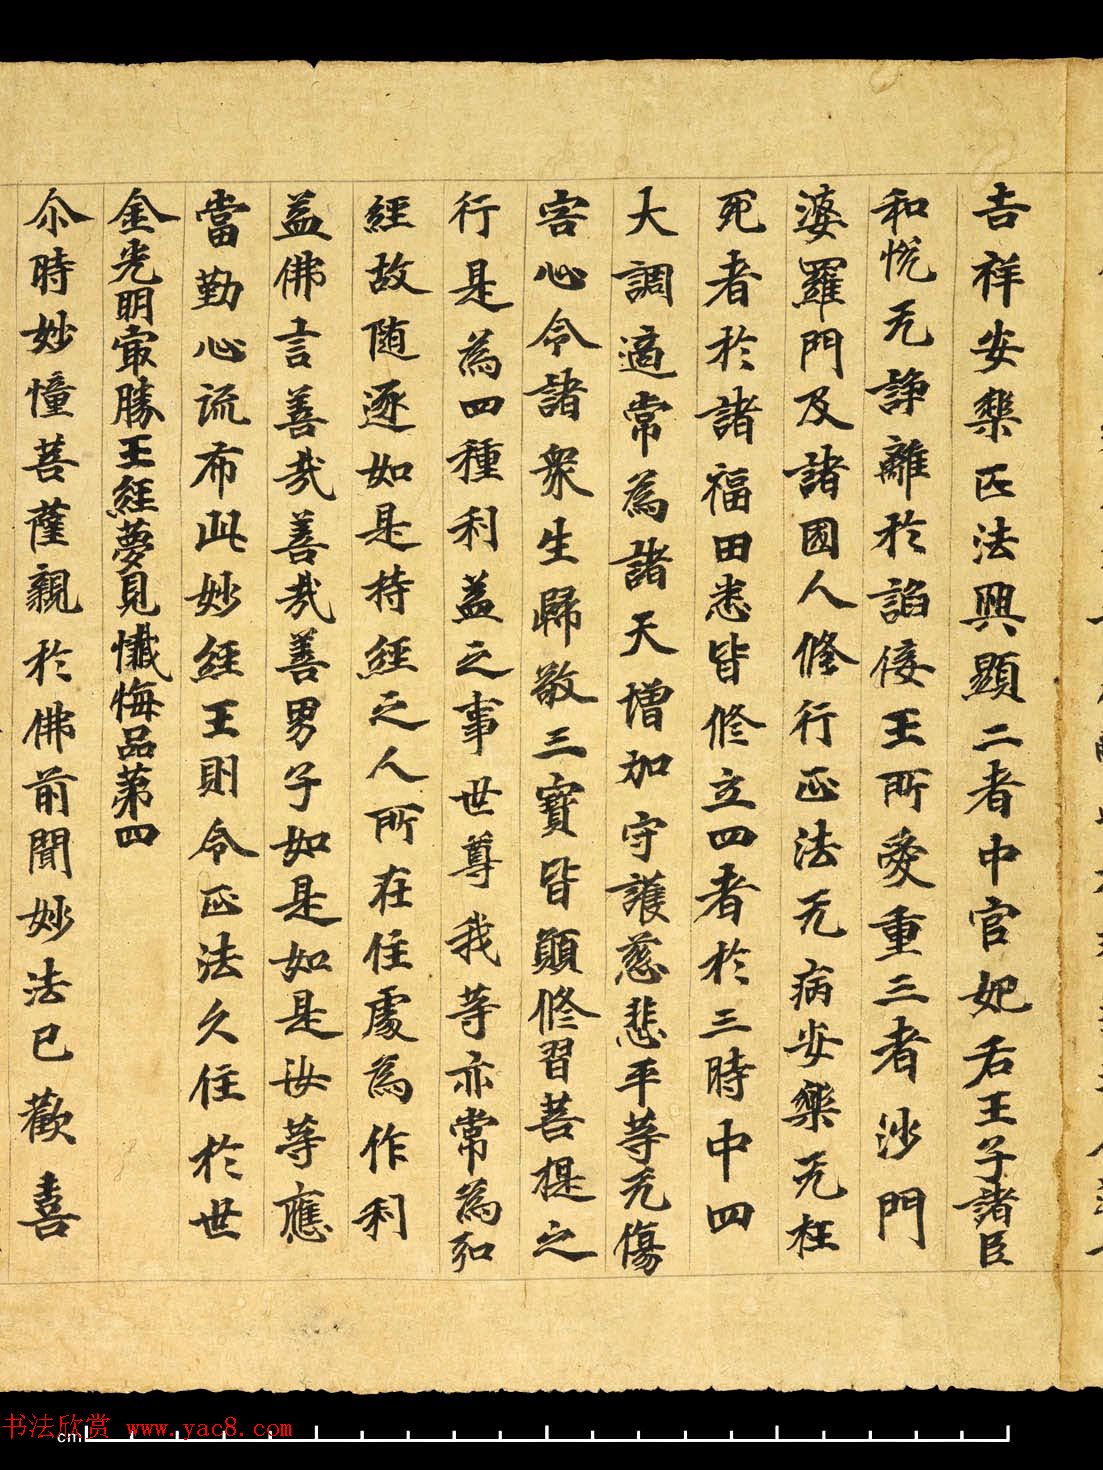 吉祥安樂正法興顯二者中宮妃后王子諸臣
和悅无諍離於諂佞王所愛重三者沙門
婆羅門及諸國人修行正法无病安樂无枉
死者於諸福田悉皆修立四者於三時中四
大調適常為諸天增加守護慈悲平等无傷
害心令諸衆生歸敬三寶皆願修習菩提之
行是為四種利益之事世尊我等亦常為弘
經故随逐如是持經之人所在住處為作利
益佛言善哉善哉善男子如是如是汝等應
當勤心流布此妙經王則令正法久住於世
金光明寂勝王經夢見懺悔品苐四
尒時妙幢菩薩親於佛前聞妙法已歡喜
书法欣赏 www.yac8.com
cm